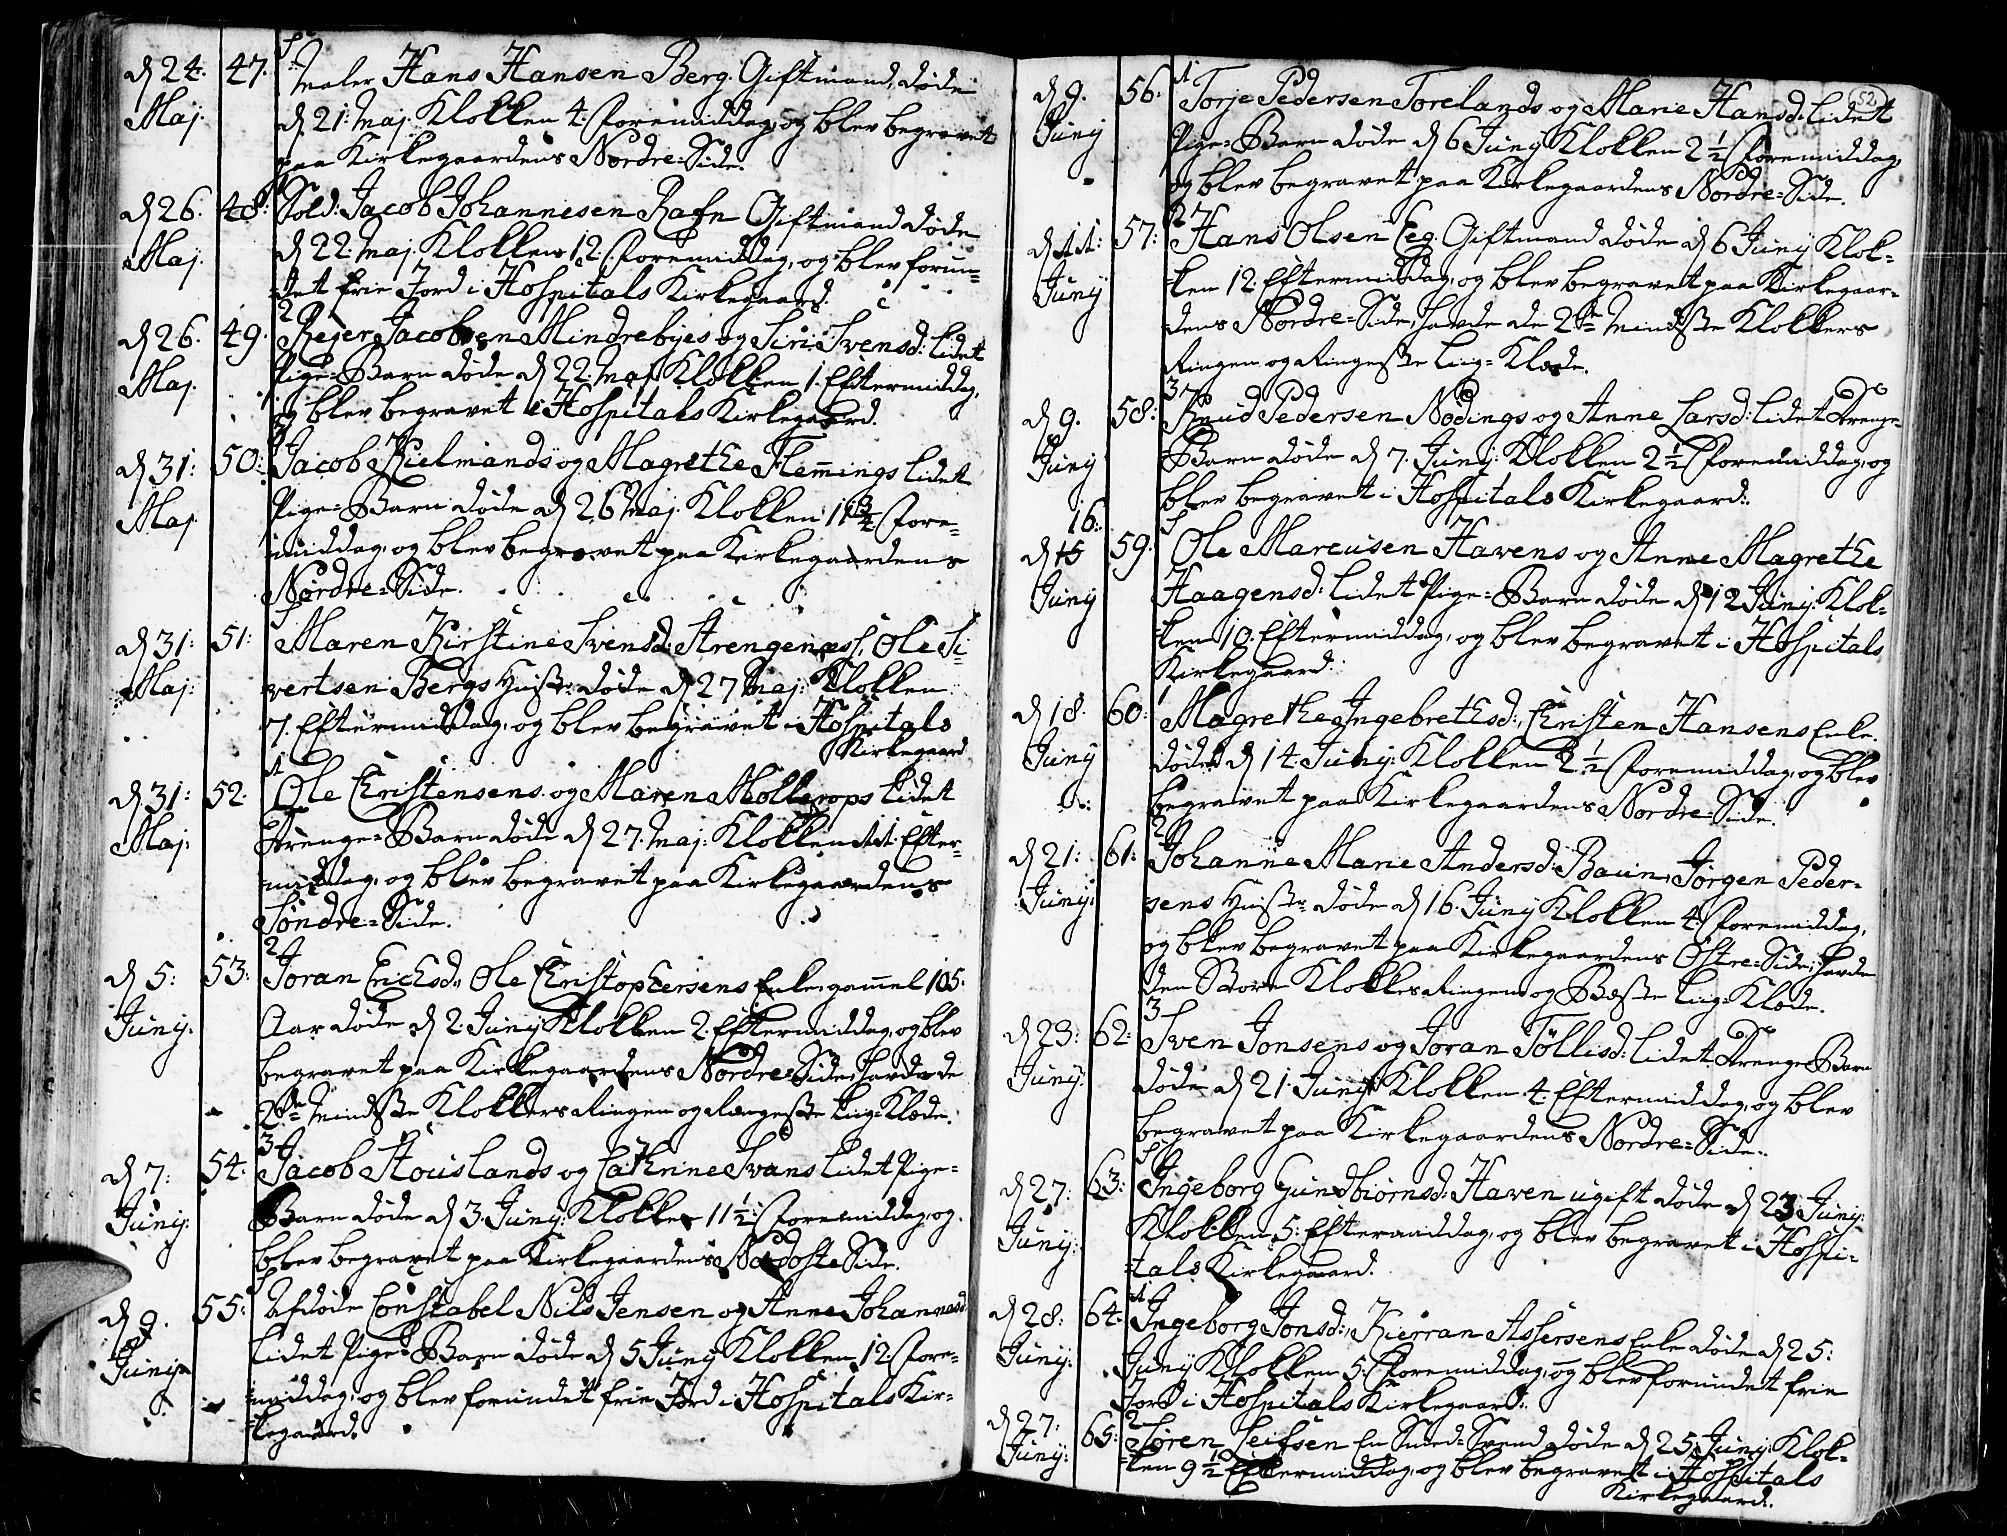 d 24. 47. Maler Hans Hansen Berg. Giftmand, døde
Maj. d 21: Maj. Klokken 4. Formiddag, og blev begravet
paa Kirkegaardens Nordre-Side.
d 26. 48: Sold: Jacob Johannesen Rafn Giftmand døde
Maj. d 22. Maj. Klokken 12. Formiddag, og blev forun-
-det frie Jord i Hospitals Kirkegaard.
2
d 26. 49. Rejer Jacobsen Mindrebyes og Siri Svensd: lidet
Maj. Pige-Barn døde d 22. Maj. Klokken 1. Eftermiddag,
og blev begravet i Hospitals Kirkegaard.
d 31: 50: Jacob Kielmands og Magrethe Flem̄ings lidet
Maj. Pige-Barn døde d 26 Maj. Klokken 11 3/4 Fore-
middag, og blev begravet paa Kirkegaardens
Nordre-Side.
d 31: 51: Maren Kirstine Svensd: Strengenæs, Ole Si-
Maj: vertsen Bergs Hustr: døde d 27 Maj: Klokken
7. Eftermiddag, og blev begravet i Hospitals
Kirkegaard
1
d 31: 52. Ole Christensens og Maren Mollerops lidet
Maj: Drenge-Barn døde d 27. Maj: Klokken 11. Efter-
-middag, og blev begravet paa Kirkegaardens
Søndre-Side.
2
d 5: 53: Joran Erichsd:, Ole Christophersens Enke, gam̄el 105.
Junij: Aar døde d 2. Junij Klokken 2. Eftermiddag, og blev
begravet paa Kirkegaardens Nordre-Side, havde de
2de Mindste Klokkers Ringen og Ringeste Liig-Klæde.
3
d 7: 54: Jacob Houslands og Cathrine Svans lidet Pige-
Junij: Barn døde d 3. Junij: Klokken 11 1/2: Formiddag, og
blev begravet paa Kirkegaardens Nordoste Side.
d 9. 55: Afdøde Constabel Nils Jensen og Anne Johannesd:
Junij. lidet Pige-Barn døde d 5 Junij Klokken 12. Fore-
middag, og blev forundet frie Jord i Hospitals Kir-
-kegaard.
52
1
d 9. 56: Torje Pedersen Torelands og Marie Hansd: lidet
Junij Pige-Barn døde d 6 Junij Klokken 2 1/2 Formiddag,
og blev begravet paa Kirkegaardens Nordre-Side.
2
d 11: 57: Hans Olsen Eeg. Giftmand døde d 6 Junij Klok-
Junij -ken 12. Eftermiddag, og blev begravet paa Kirkegaar-
dens Nordre-Side, havde de 2de Mindste Klokkers
Ringen og Ringeste Liig-Klæde.
3
d 9. 58: Knud Pedersen Nødings og Anne Larsd: lidet Drenge-
Junij Barn døde d 7. Junij: Klokken 2 1/2 Formiddag, og
blev begravet i Hospitals Kirkegaard:
16:
d 15 59. Ole Marcusen Havens og Anne Magrethe
Junij Haagensd: lidet Pige-Barn døde d 12 Junij: Klok-
-ken 10. Eftermiddag, og blev begravet i Hospitals
Kirkegaard:
1
d 18. 60: Magrethe Ingebrethsd:, Christen Hansens Enke.
Junij døde d 14. Junij: Klokken 2 1/2 Formiddag, og blev
begravet paa Kirkegaardens Nordre-Side.
2
d 21: 61: Johanne Marie Andersd: Baun, Jørgen Peder-
Junij: sens Hustr: døde d 16. Junij Klokken 4 Formiddag,
og blev begravet paa Kirkegaardens Østre-Side, havde
den Store Klokkes Ringen og Beste Liig-Klæde.
3
d 23: 62: Sven Jonsens og Joran Tøllisd: lidet Drenge Barn
Junij: døde d 21. Junij Klokken 4. Eftermiddag, og blev
begravet paa Kirkegaardens Nordre-Side.
d 27: 63: Ingeborg Gundbiørnsd: Haven ugift døde d 23 Junij:
Junij: Klokken 5: Eftermiddag, og blev begravet i Hospi-
-tals Kirkegaard.
1
d 28: 64: Ingeborg Jonsd:, Kierran Assersens Enke døde d 25:
Junij: Junij Klokken 5. Formiddag, og blev forundet frie
Jord i Hospitals Kirkegaard:
2
d 27: 65: Søren Leifsen En Smed-Svend døde d 25 Junij: Klok-
Junij: -ken 9 1/2 Eftermiddag, og blev begravet i Hospitals
Kirkegaard.